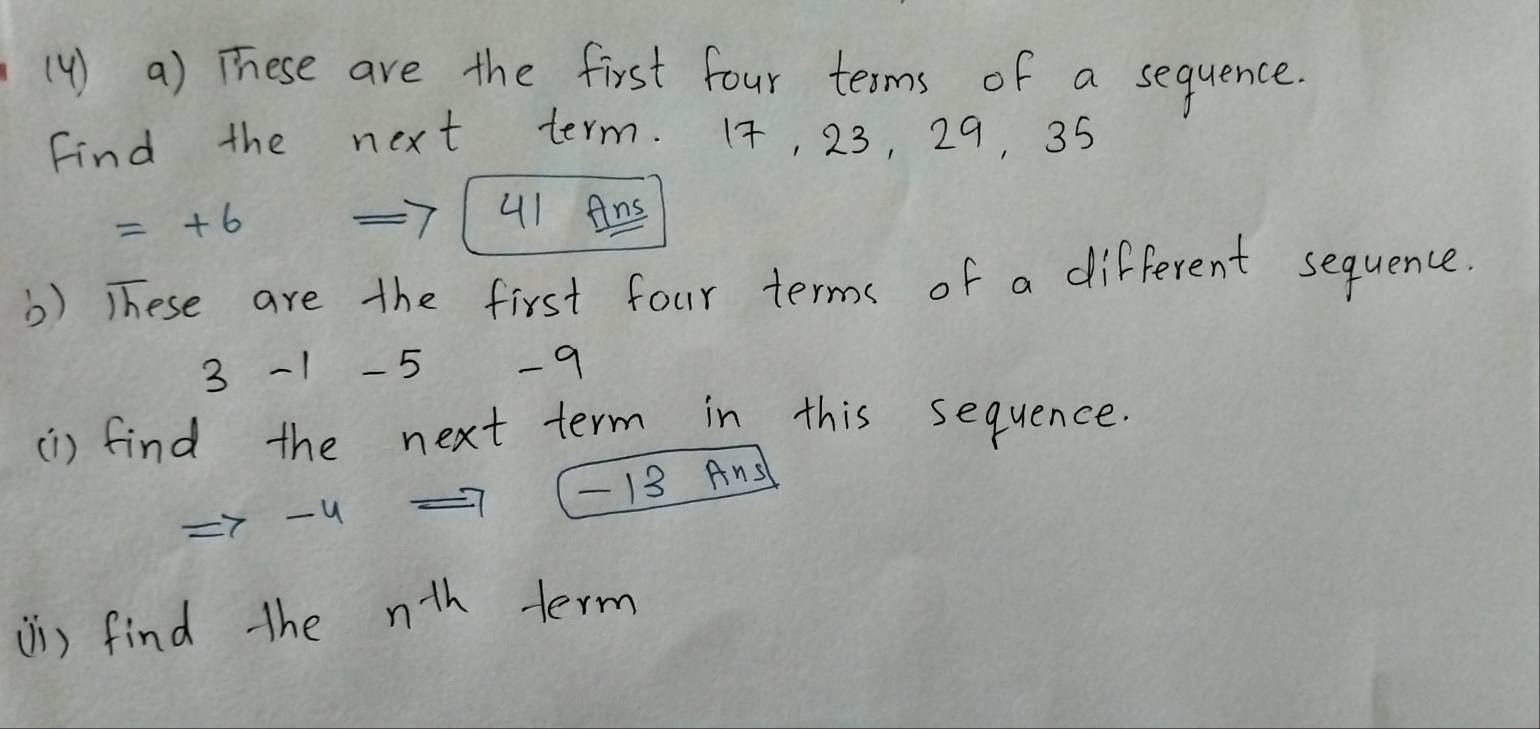 14) a) These are the first four terms of a sequence.
Find the next term. 17, 23, 29, 35
= +6 => 41 Ans
b) These are the first four terms of a different sequence.
3 -1 -5 -9
(i) find the next term in this sequence.
=> -4 => -13 Ans
(ii) find the nth term